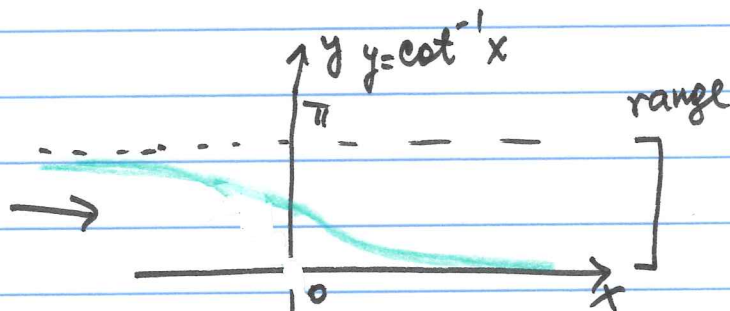 y y=cot⁻¹x
π
range
0
x